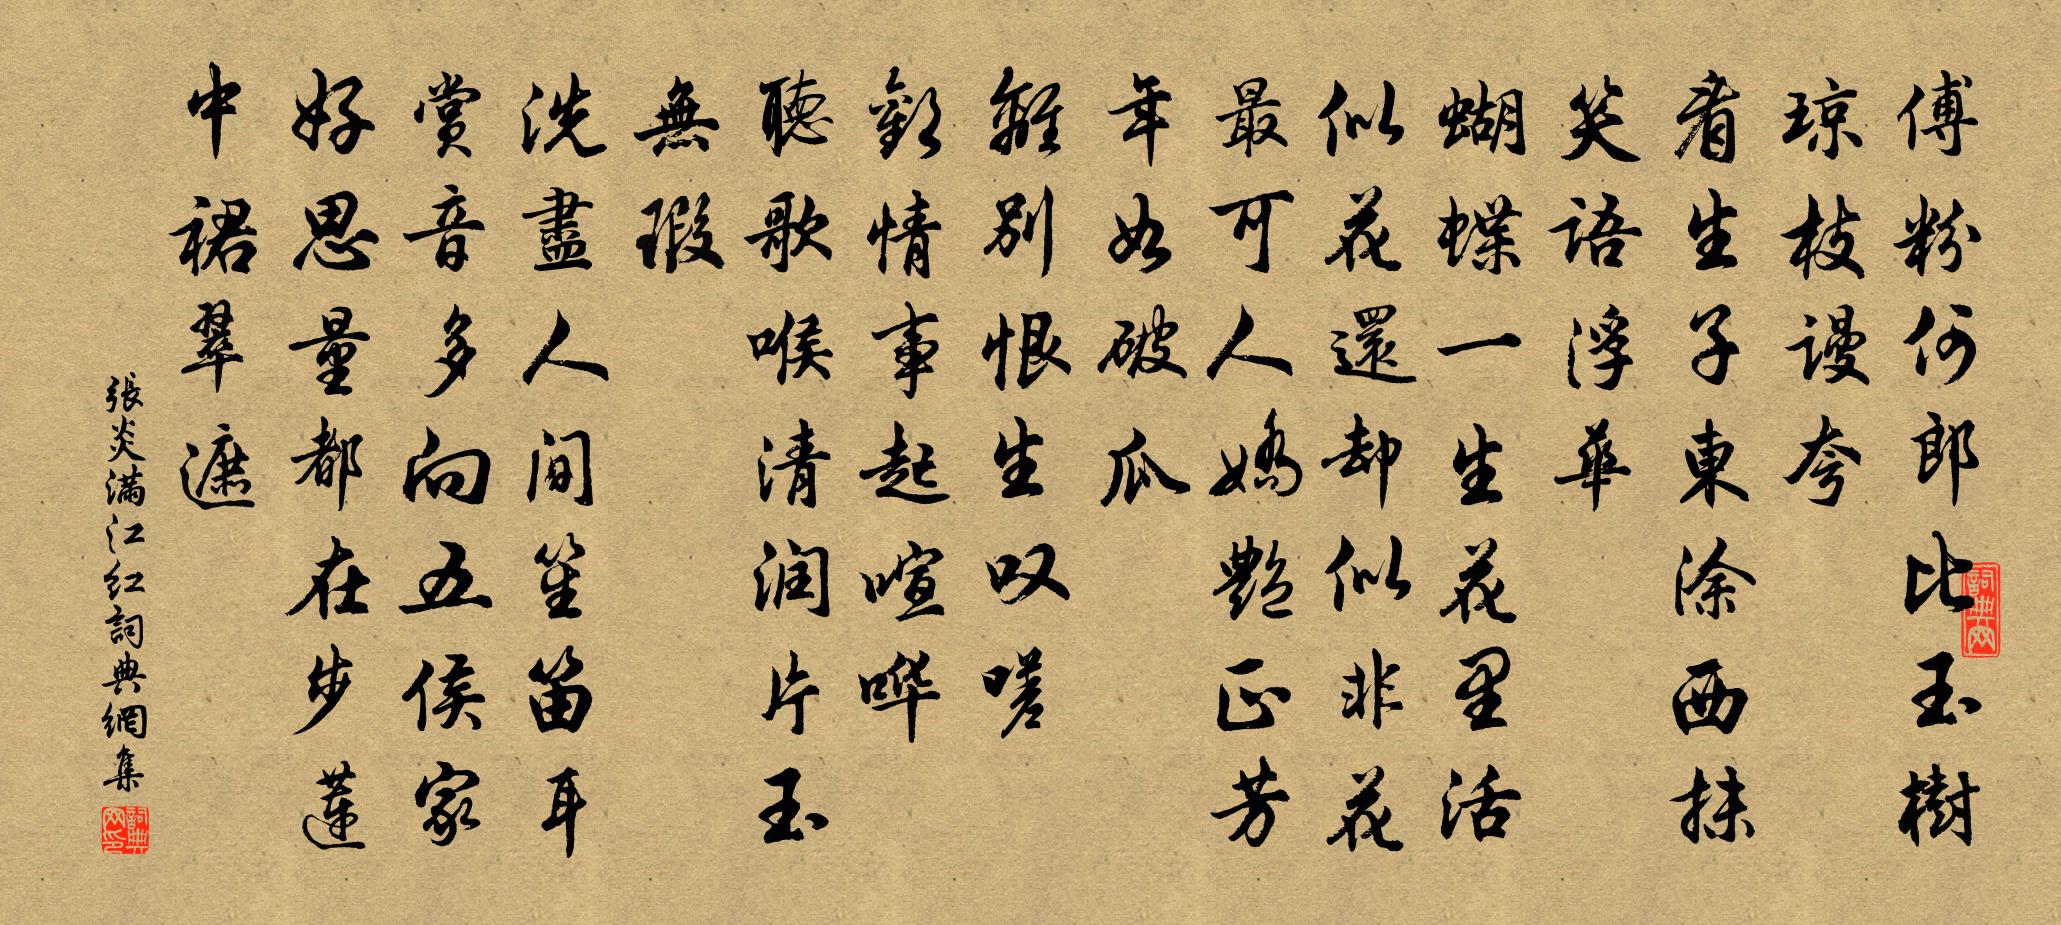 傅粉何郎比玉樹
琼枝謾夸
看生子東涂西抹
笑語浮華
蝴蝶一生花里活
似花還却似非花
最可人嬌艷正芳
年如破瓜
離別恨生叹嗟
歡情事起喧哗
聽歌喉清润片玉
無瑕
洗盡人间笙笛耳
賞音多向五侯家
好思量都在步蓮
中裙翠遮
張炎满江红詞典網集
詞典网
詞典网印